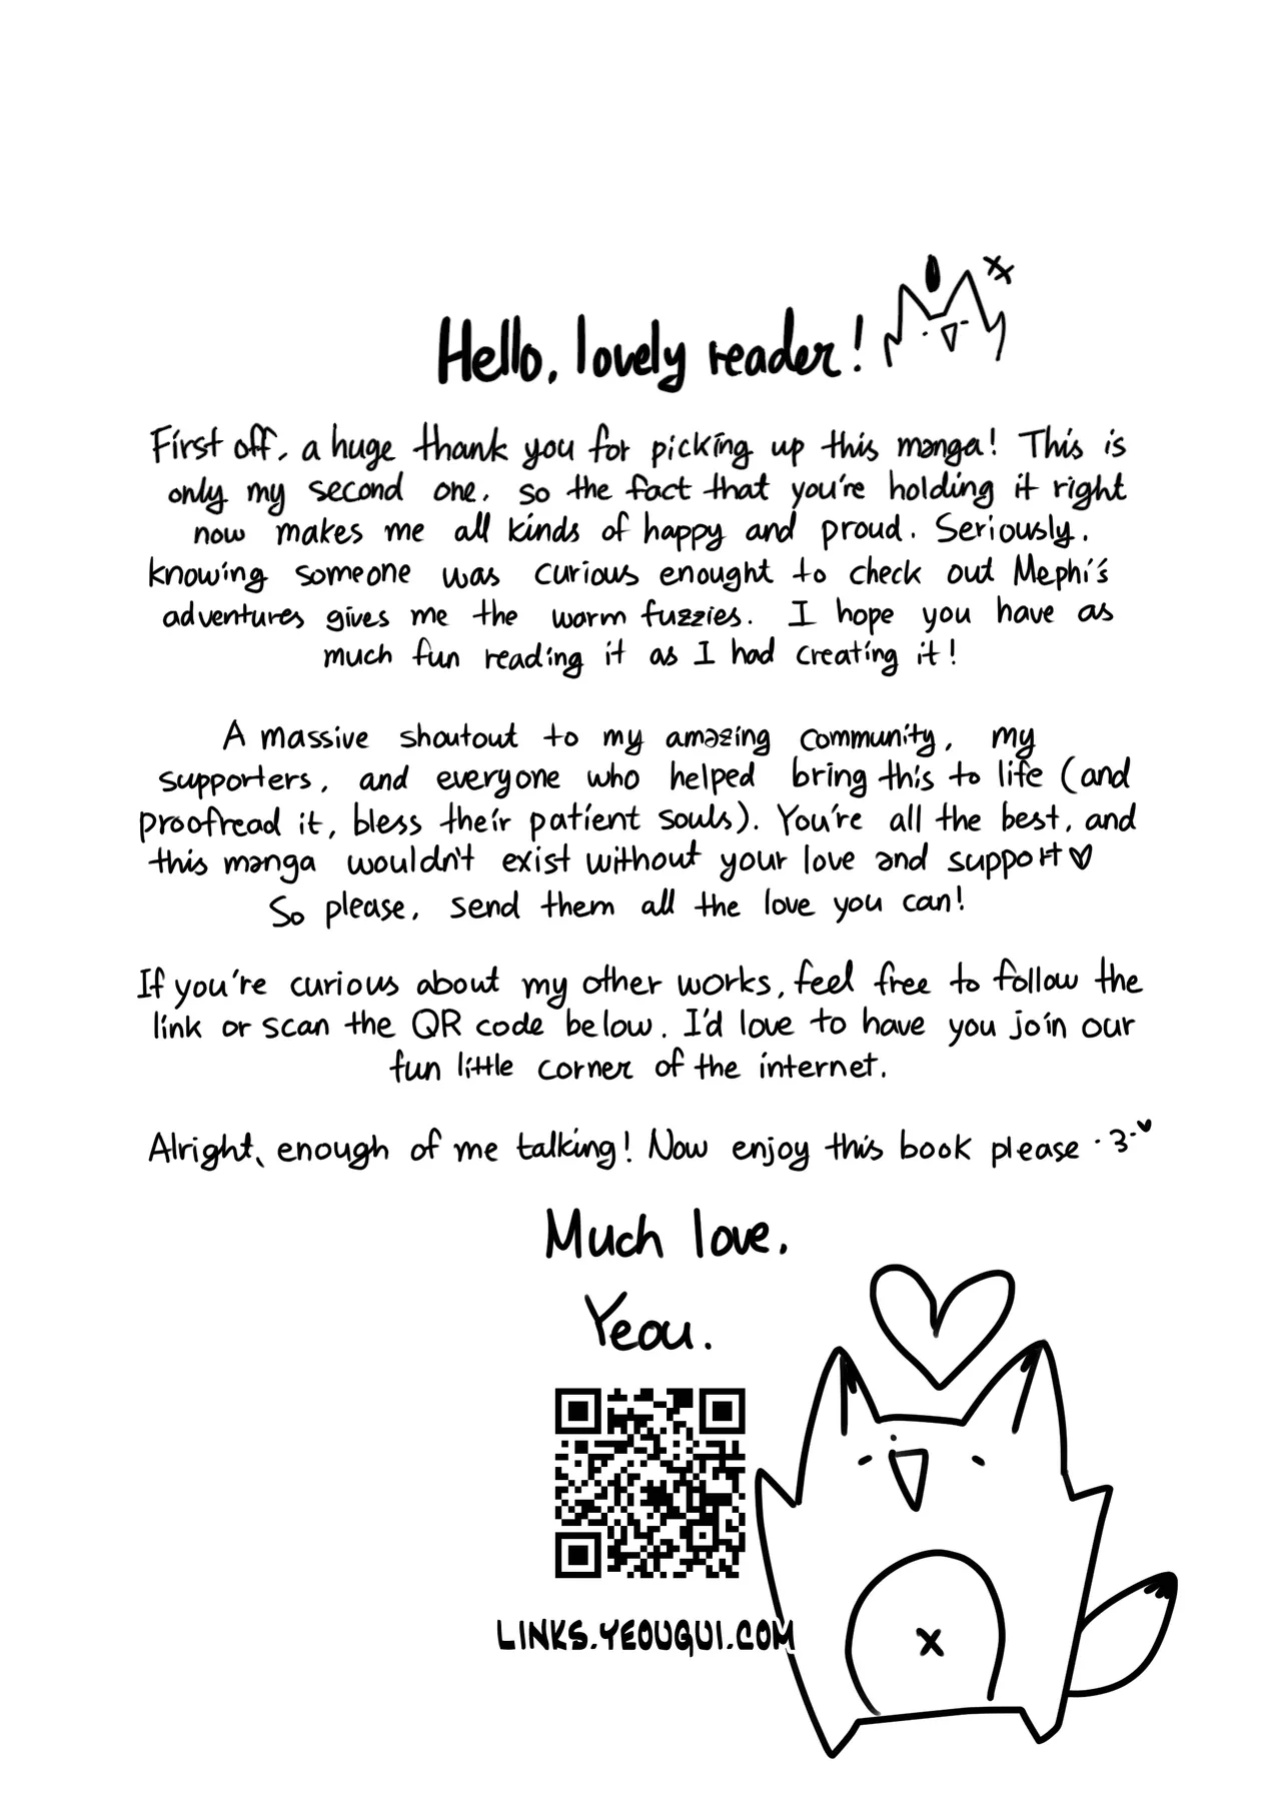 Hello, lovely reader!
First off, a huge thank you for picking up this manga! This is
only my second one, so the fact that you're holding it right
now makes me all kinds of happy and proud. Seriously,
knowing someone was curious enought to check out Mephi's
adventures gives me the warm fuzzies. I hope you have as
much fun reading it as I had creating it!
A massive shoutout to my amazing community, my
supporters, and everyone who helped bring this to life (and
proofread it, bless their patient souls). You're all the best, and
this manga wouldn't exist without your love and support♡
So please, send them all the love you can!
If you're curious about my other works, feel free to follow the
link or scan the QR code below. I'd love to have you join our
fun little corner of the internet.
Alright, enough of me talking! Now enjoy this book please ·3·♥
Much love,
Yeou.
LINKS.YEOUGUI.COM